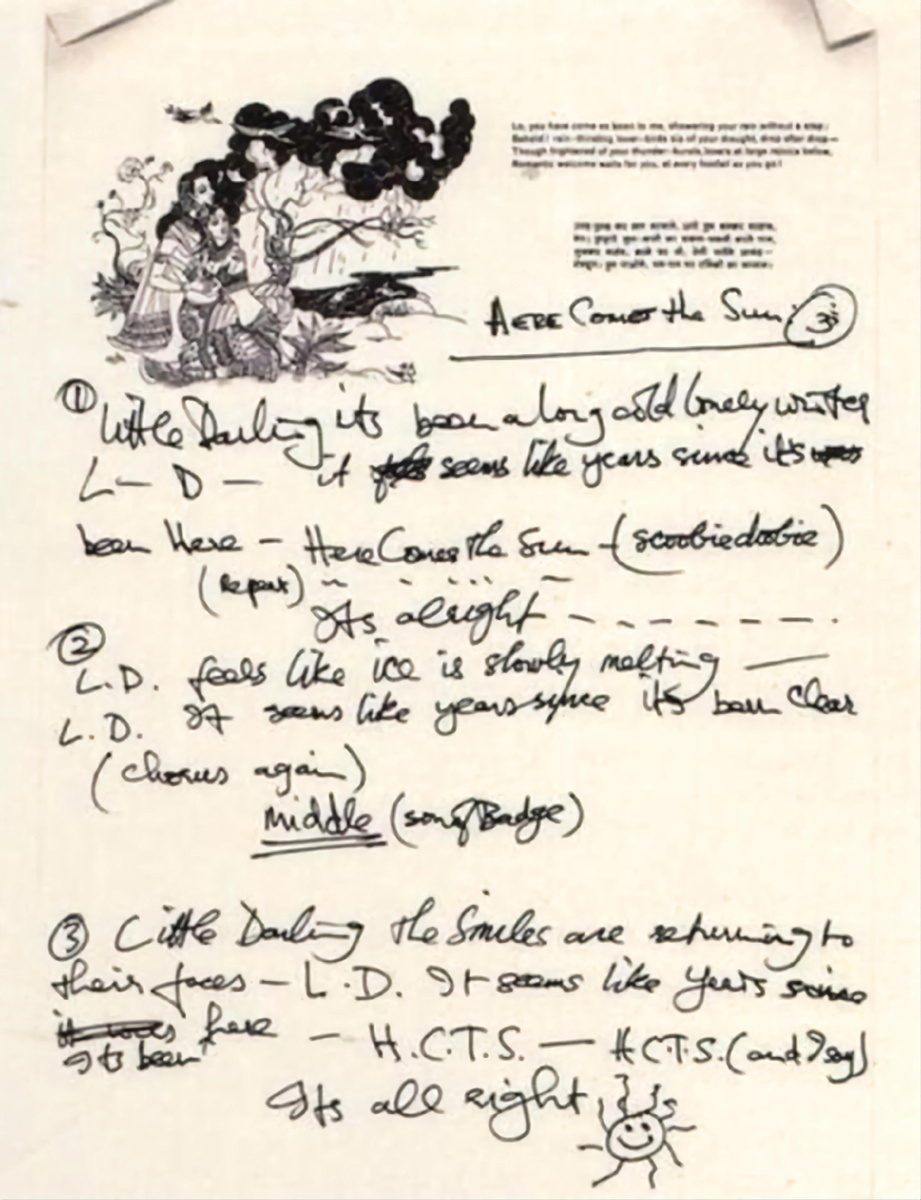 Lo, you have come as boon to me, showering your rain without a stop;
Behold! rain-thirsting lover-birds sip of your draught, drop after drop—
Though frightened of your thunder- lovers at large rejoice below,
Romantic welcome waits for you, at every footfall as you go!
HERE Comes the Sun.
① Little Darling its been a long cold lonely winter
L— D — it seems like years since it's
been Here — Here Comes the Sun — (scoobiedoobie)
(Repeat)
Its alright — — — — — — — .
②
L.D. feels like ice is slowly melting ——
L.D. It seems like years since it's been Clear
(chorus again)
middle (song Badge)
③ Little Darling the Smiles are returning to
their faces — L.D. It seems like Years since
it was here
Its been
— H.C.T.S. — H.C.T.S. (and I say)
Its all right